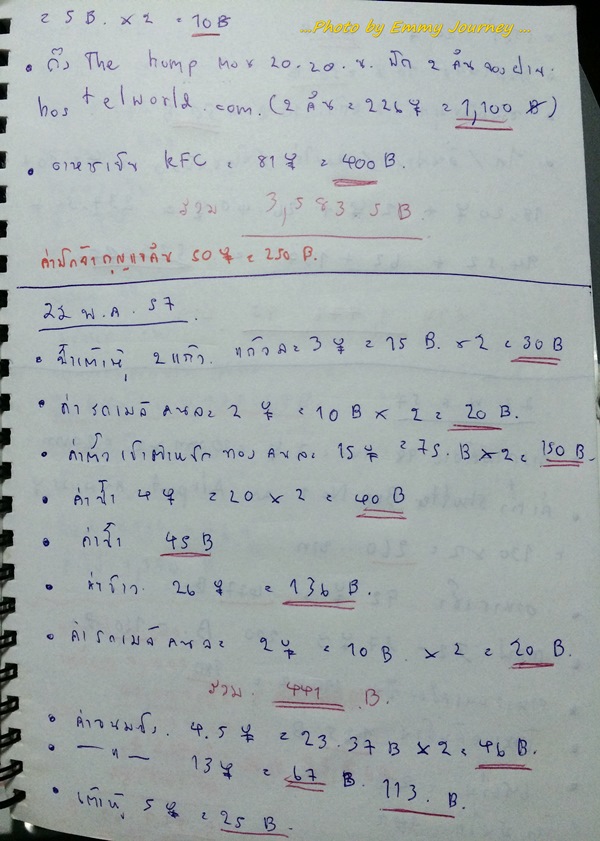 ...Photo by Emmy Journey ...
= 5 B. × 2 = 10 B
• ถึง The hump ตอน 20.20 น. พัก 2 คืน จองผ่าน
hostelworld.com. (2 คืน = 226 ¥ = 1,100 B)
• อาหารเย็น KFC = 81 ¥ = 400 B.
รวม 3,583.5 B
ค่ามัดจำกุญแจคืน 50 ¥ = 250 B.
22 พ.ค. 57.
• น้ำเต้าหู้ 2 แก้ว. แก้วละ 3 ¥ = 15 B. × 2 = 30 B
• ค่ารถเมล์คนละ 2 ¥ = 10 B × 2 = 20 B.
• ค่าตั๋วเข้าตำหนักทองคนละ 15 ¥ = 75. B × 2 = 150 B.
• ค่าน้ำ 4 ¥ = 20 × 2 = 40 B
• ค่าน้ำ 45 B
• ค่าข้าว. 26 ¥ = 136 B.
• ค่ารถเมล์คนละ 2 ¥ = 10 B. × 2 = 20 B.
รวม. 441 B.
• ค่าขนมจีบ. 4.5 ¥ = 23.37 B × 2 = 46 B.
• — " — 13 ¥ = 67 B. 113. B.
• เต้าหู้ 5 ¥ = 25 B.